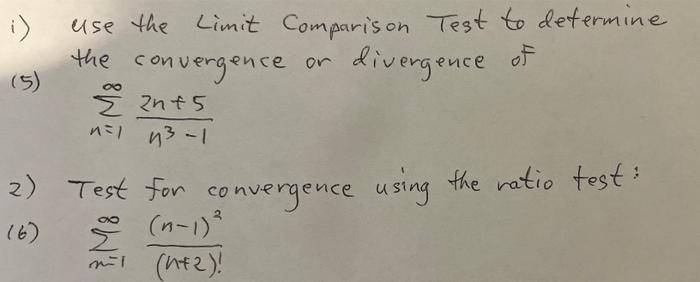 i) use the Limit Comparison Test to determine
the convergence or divergence of
(5) ∞ Σ n=1 2n+5 / n³-1
2) Test for convergence using the ratio test:
(6) ∞ Σ n=1 (n-1)² / (n+2)!